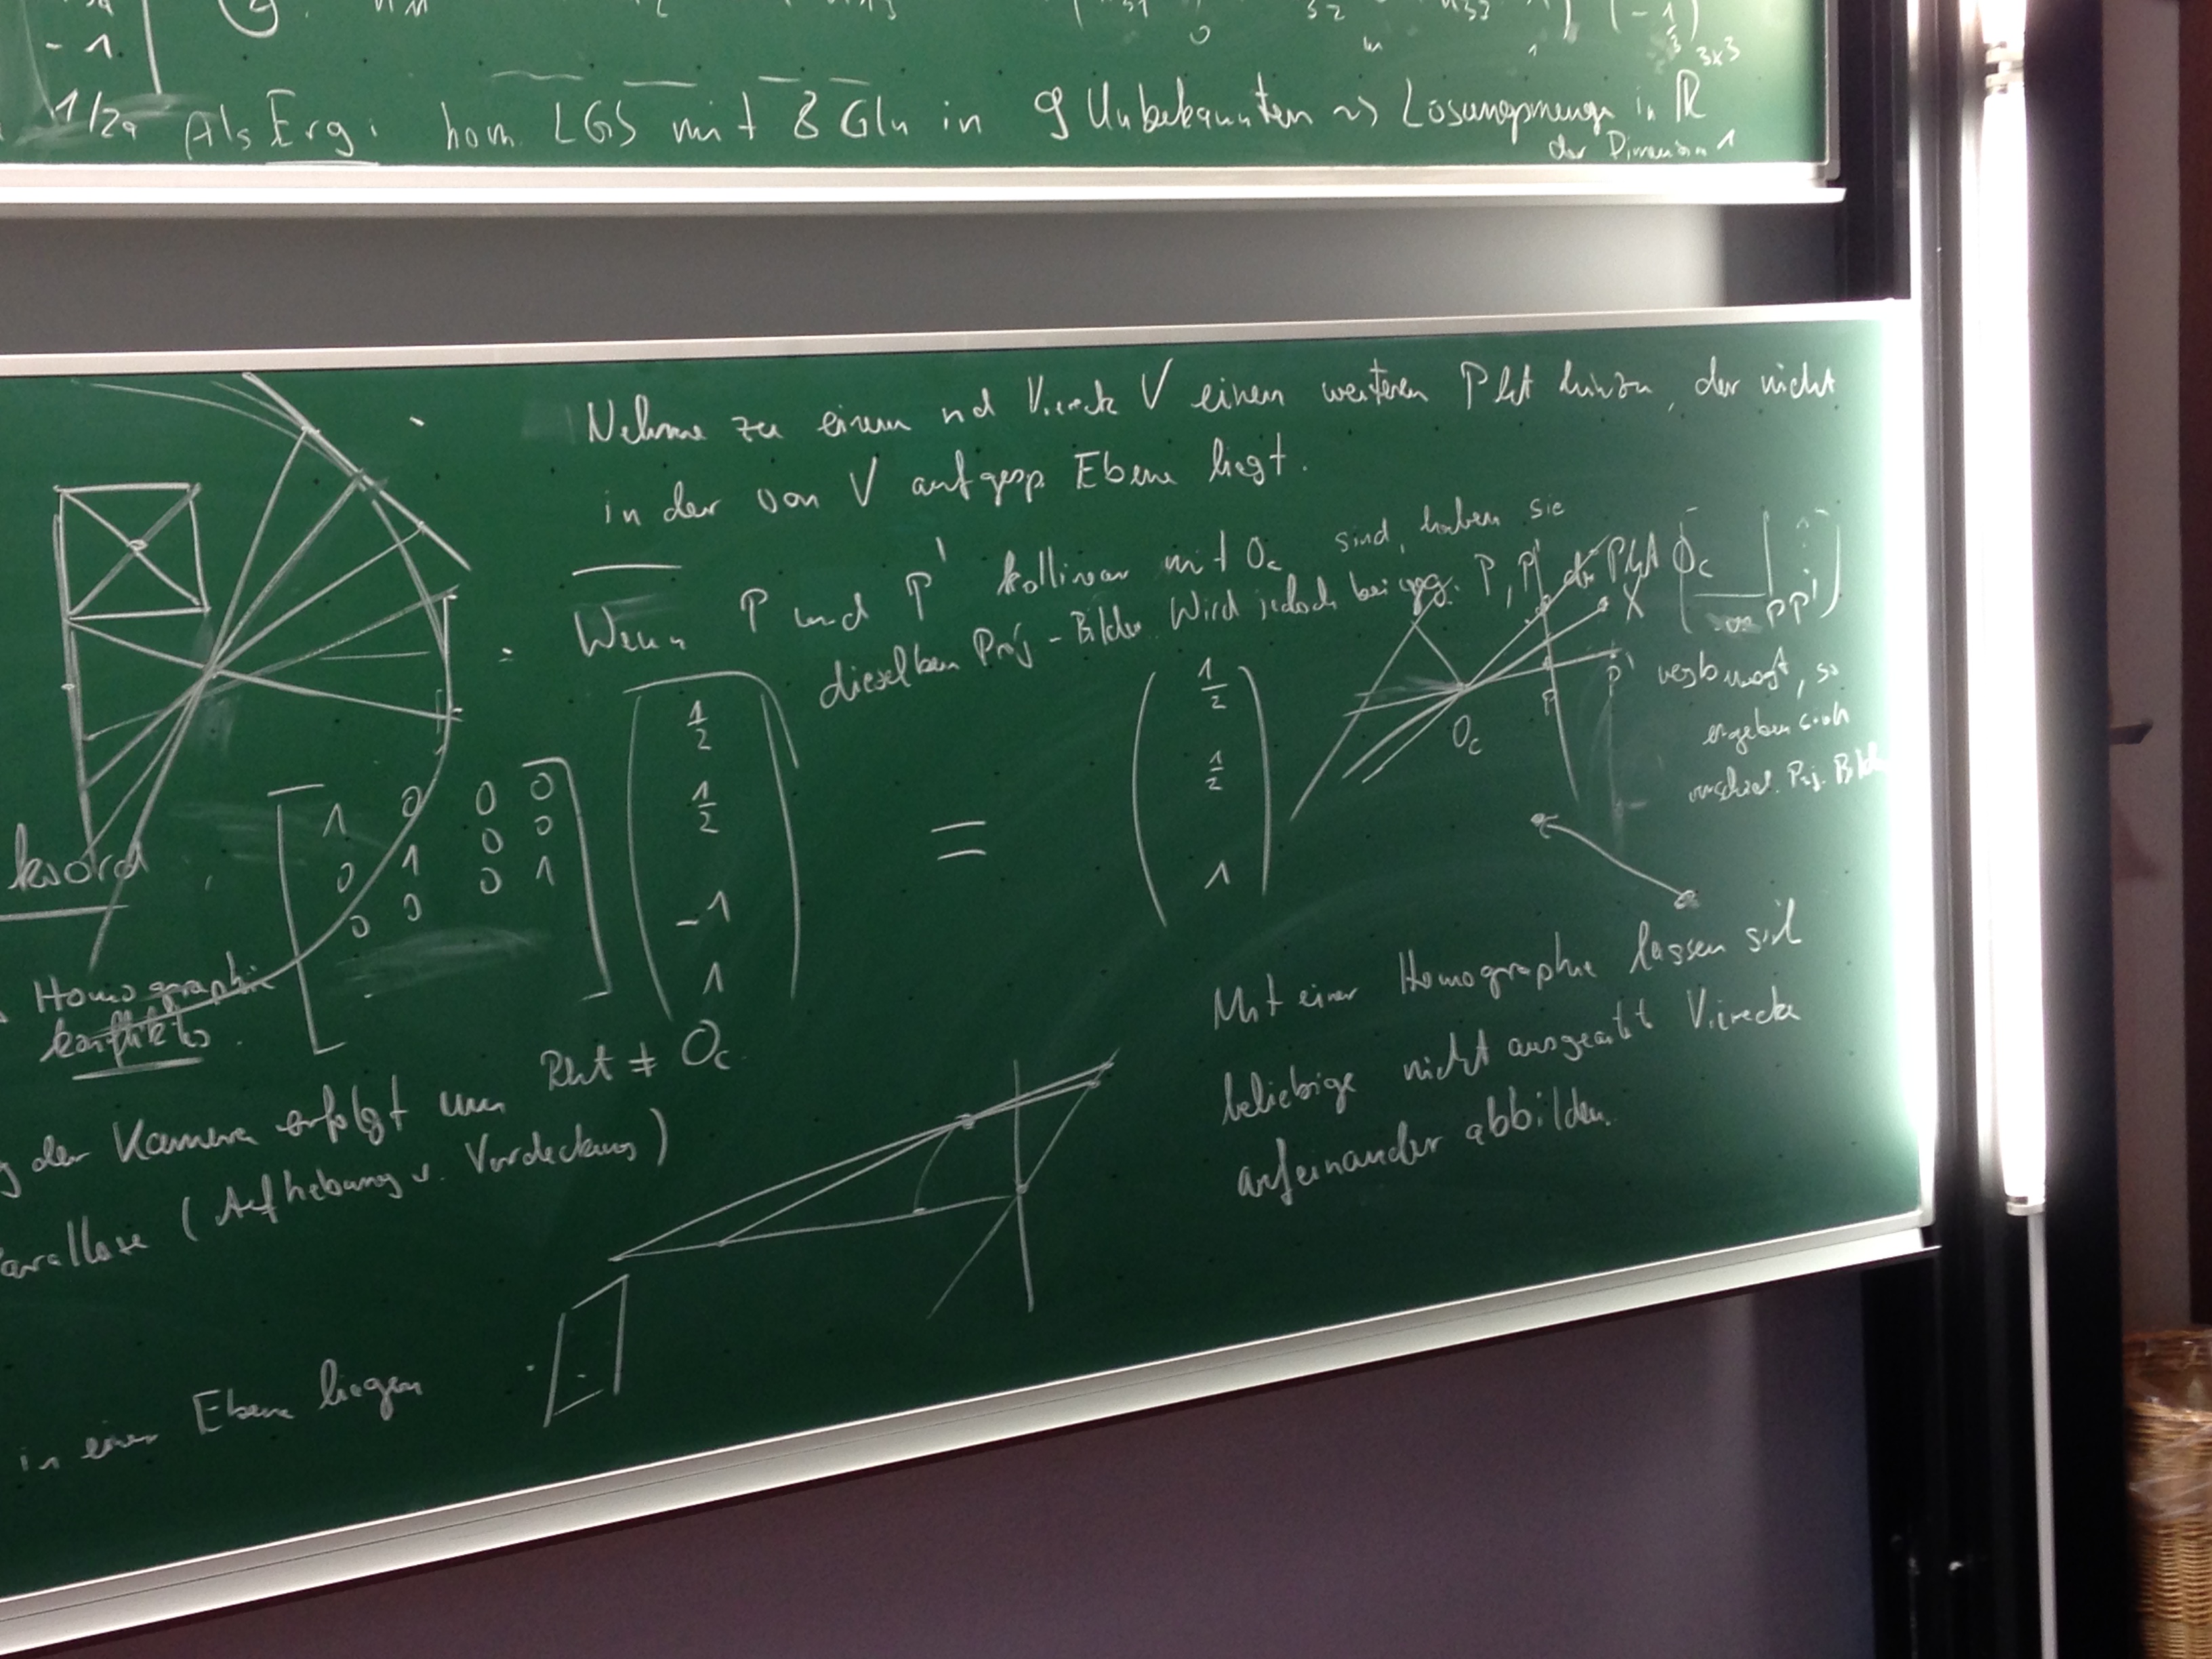 - 1
1/2a Als Erg: hom. LGS mit 8 Gln in 9 Unbekannten ~> Lösungsmenge in R 3x3
der Dimension 1
Nehme zu einem nd Viereck V einen weiteren Pkt hinzu, der nicht
in der von V aufgesp. Ebene liegt.
Wenn P und P' kollinear mit Oc sind, haben sie
dieselben Proj-Bilder. Wird jedoch bei geg. P, P' der Pkt Oc
X
Oc P P'
verbunden, so
ergeben sich
verschied. Proj. Bilder
koord
1 0 0 0
0 1 0 0
0 0 0 1
1/2
1/2
-1
1
=
1/2
1/2
1
Homographie
konflikts
der Kamera erfolgt um Pkt ≠ Oc
Parallaxe (Aufhebung v. Verdeckung)
in einer Ebene liegen
Mit einer Homographie lassen sich
beliebige nicht ausgeartet Vierecke
aufeinander abbilden.